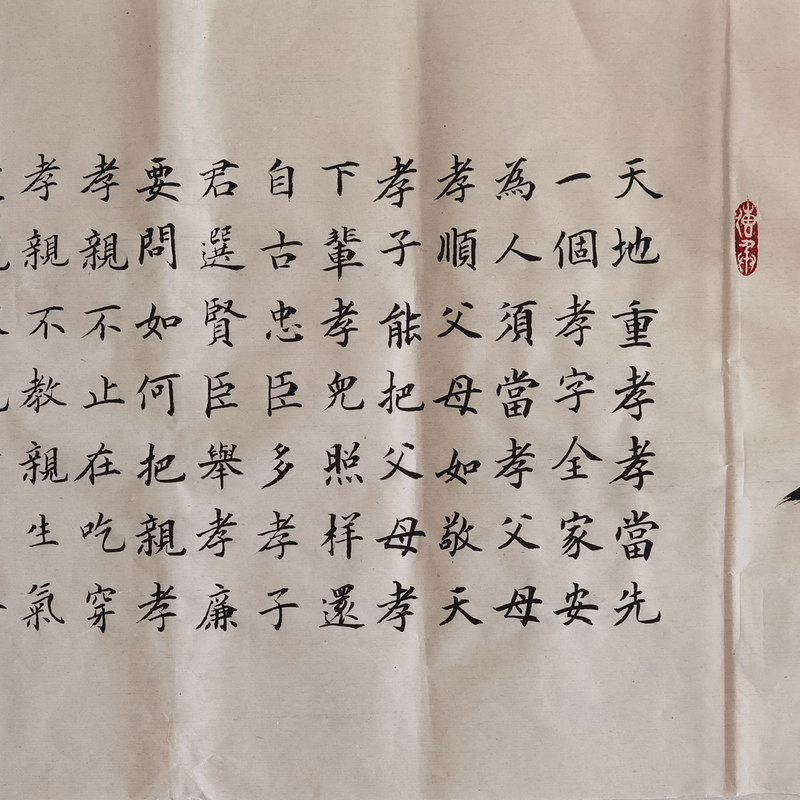 天地重孝孝當先
一個孝字全家安
為人須當孝父母
孝順父母如敬天
孝子能把父母孝
下輩孝兒照樣還
自古忠臣多孝子
君選賢臣舉孝廉
要問如何把親孝
孝親不止在吃穿
孝親不教親生氣